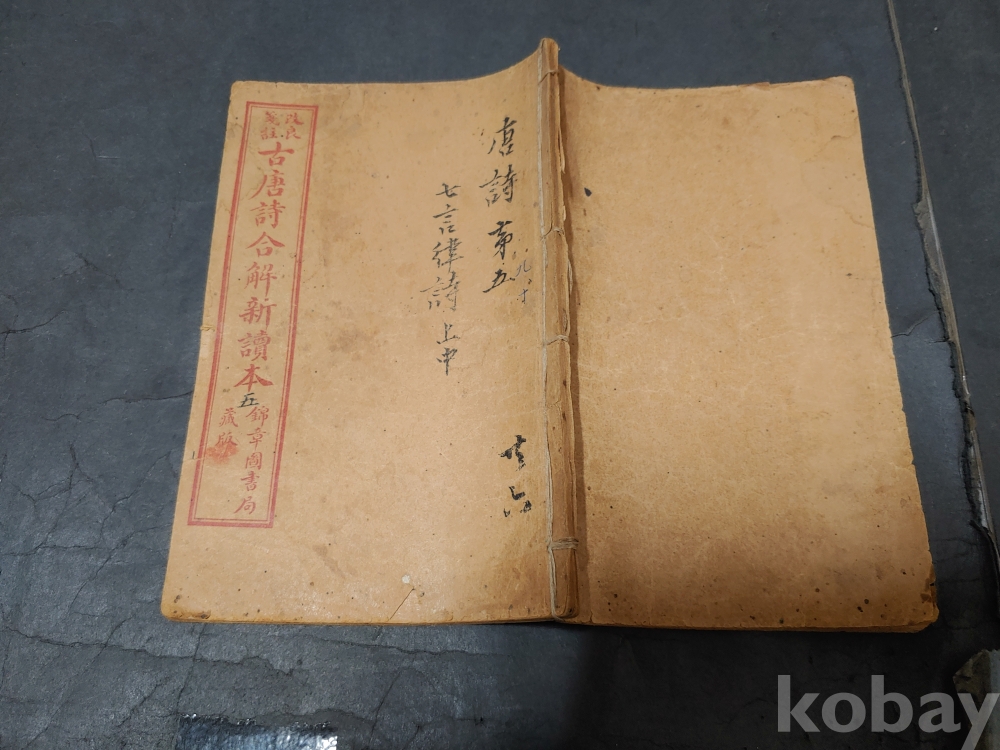 改良
箋註
古唐詩合解新讀本
五
錦章圖書局
藏版
唐詩第五
七言律詩上中
kobay